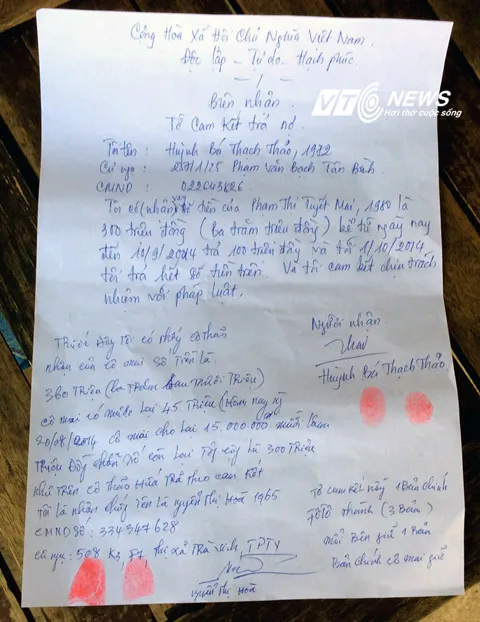 Cộng Hòa Xã Hội Chủ Nghĩa Việt Nam.
Độc lập - Tự do - Hạnh phúc.
VTC NEWS
Hơi thở cuộc sống
Biên nhận.
Tờ Cam kết trả nợ.
Tôi tên : Huỳnh Bá Thạch Thảo, 1972
Cư ngụ : 251/1/25 Phạm Văn Bạch Tân Bình
CMND : 022043626
Tôi có nhận số tiền của Phạm Thị Tuyết Mai, 1980 là
300 triệu đồng (ba trăm triệu đồng) kể từ ngày nay
đến 10/9/2014 trả 100 triệu đồng và tới 1/10/2014
tôi trả hết số tiền trên. Và tôi cam kết chịu trách
nhiệm với pháp luật.
Người nhận
Huỳnh Bá Thạch Thảo
Trước đây tôi có thấy cô thảo
nhận của cô mai số tiền là
360 triệu
cô mai có
45 triệu
2014 cô mai cho lại 15.000.000
300 triệu
như trên cô thảo hứa trả theo cam kết
Tôi là nhân chứng tên là nguyễn Thị Hoà 1965
CMND số : 334347628
cư ngụ : 508 K3, F7, thị xã Trà Vinh, TPTV
nguyễn Thị Hoà
Tờ cam kết này 1 bản chính
FOTO thành (3 Bản)
mỗi bên giữ 1 bản
Bản chính cô mai giữ